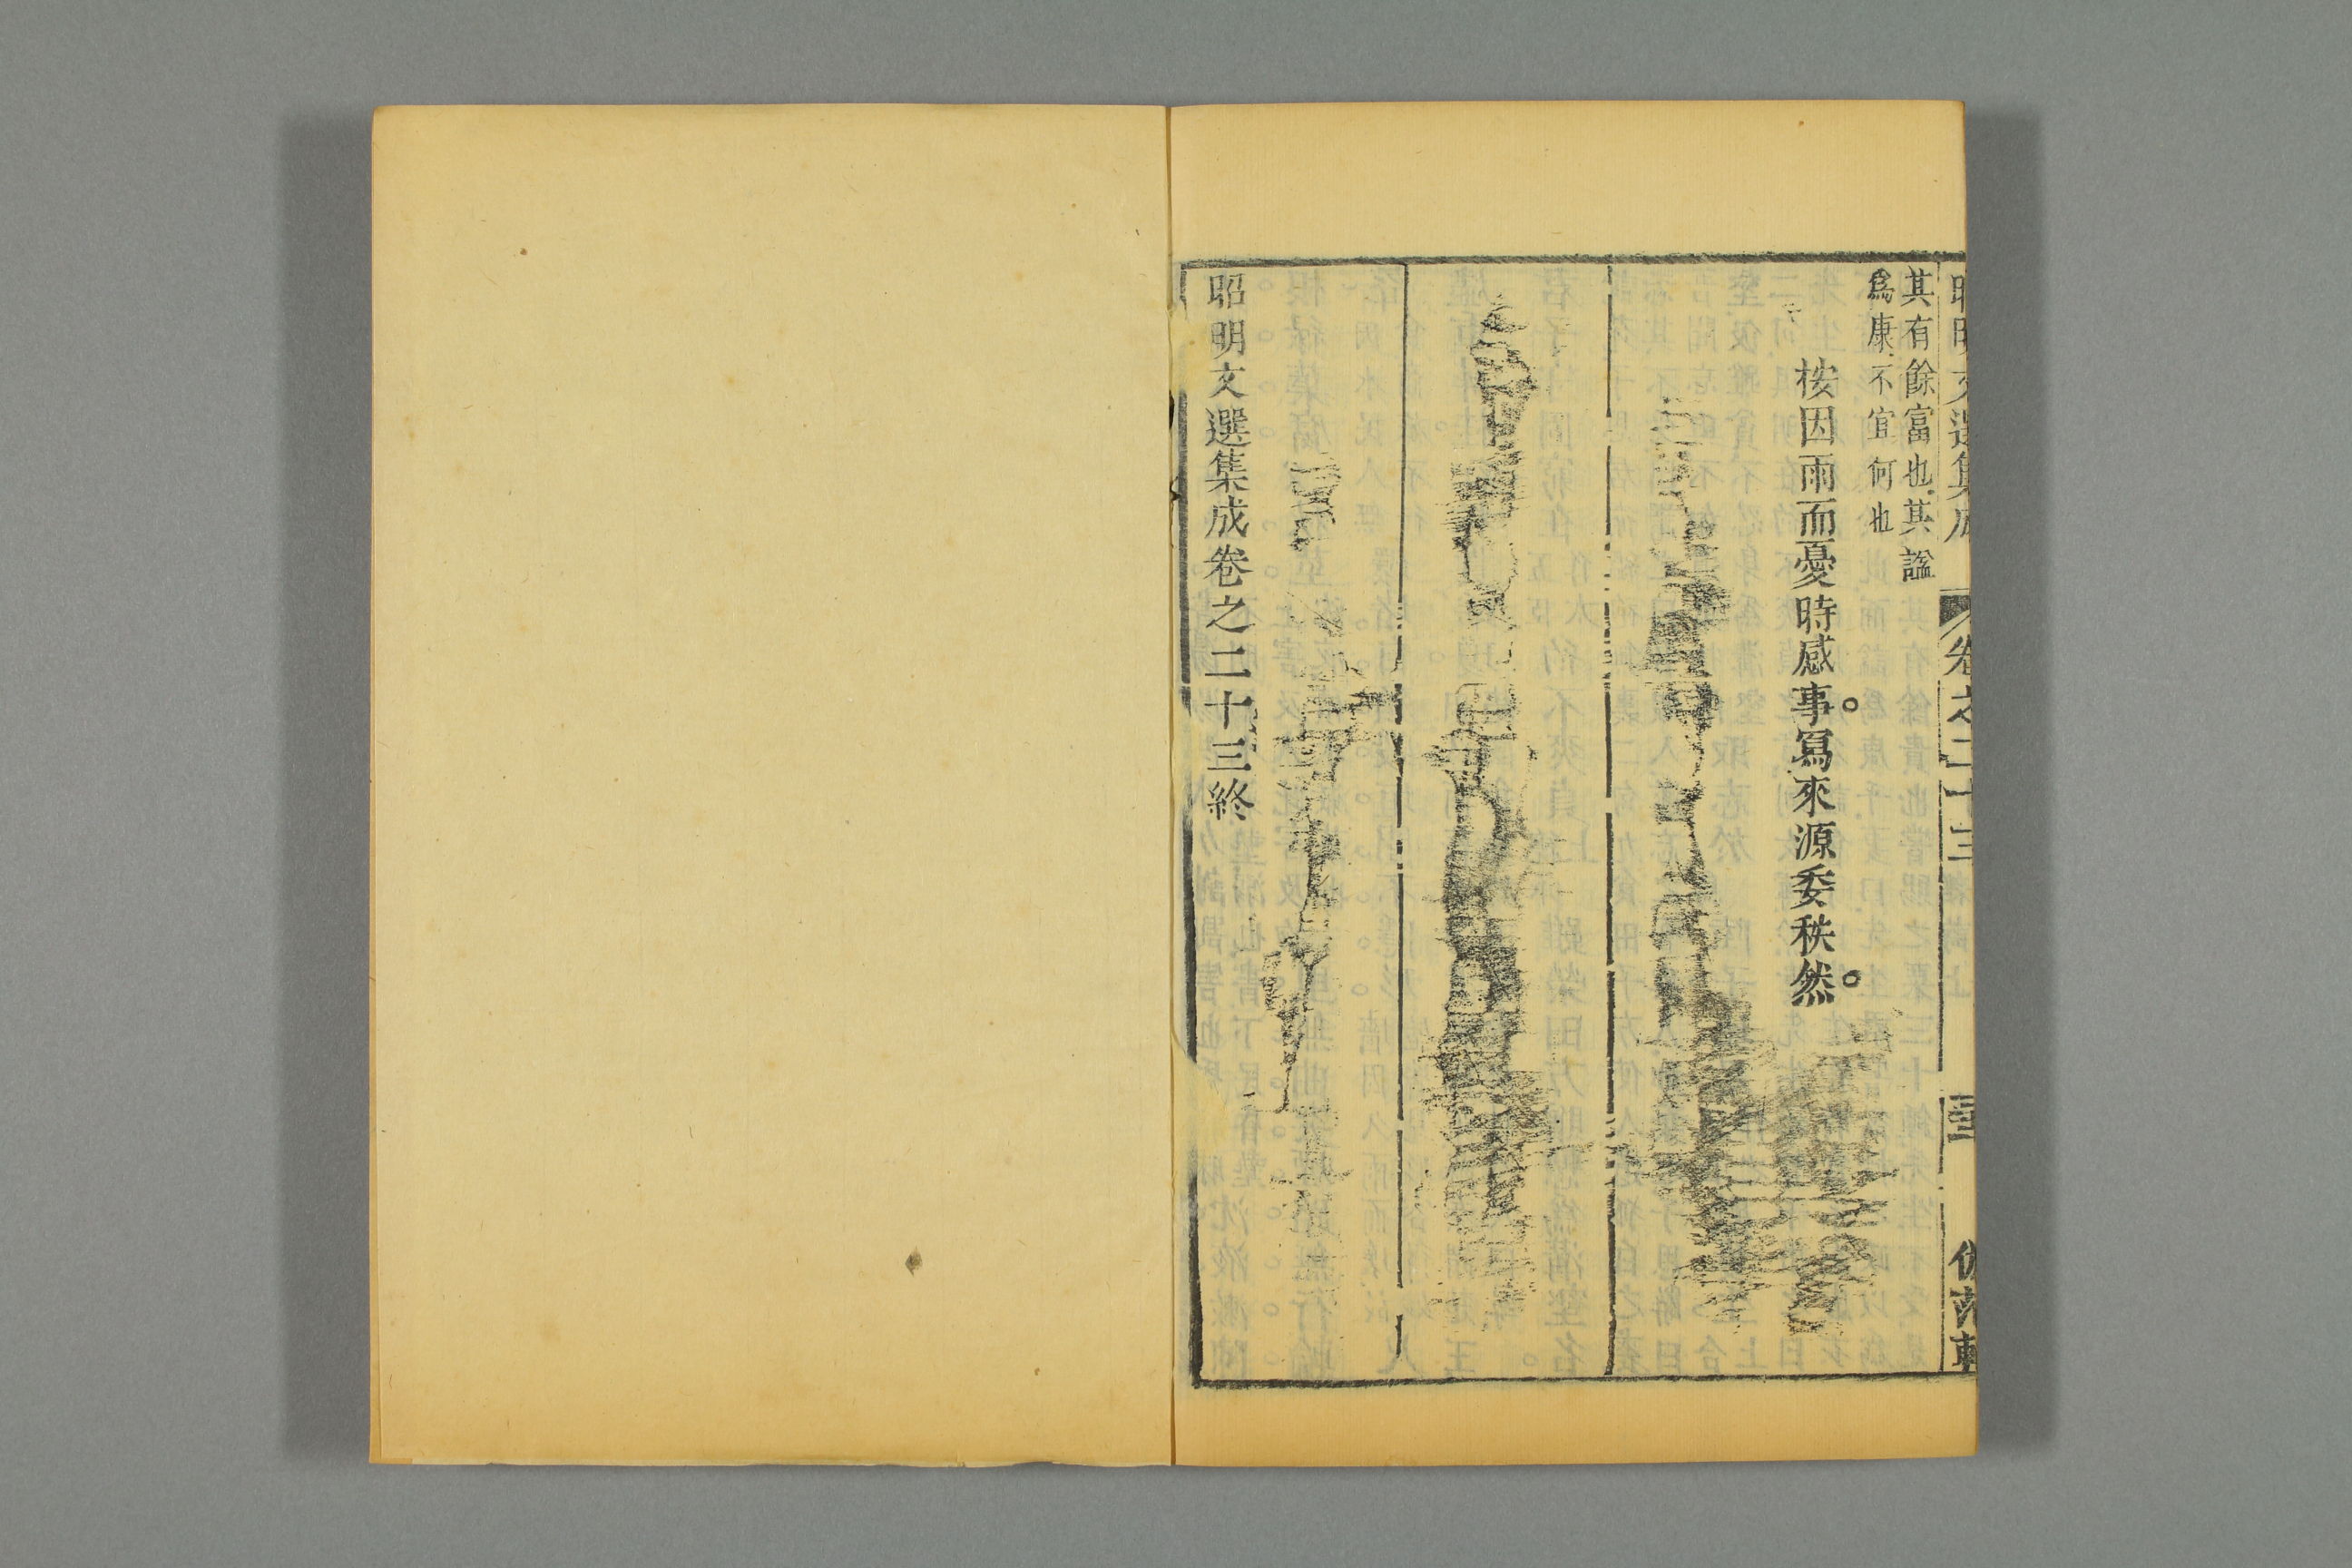 昭明文選集成 卷之二十三
其有餘富也其諡
爲康不宜何也
按因雨而憂時感事。寫來源委秩然。
昭明文選集成卷之二十三終